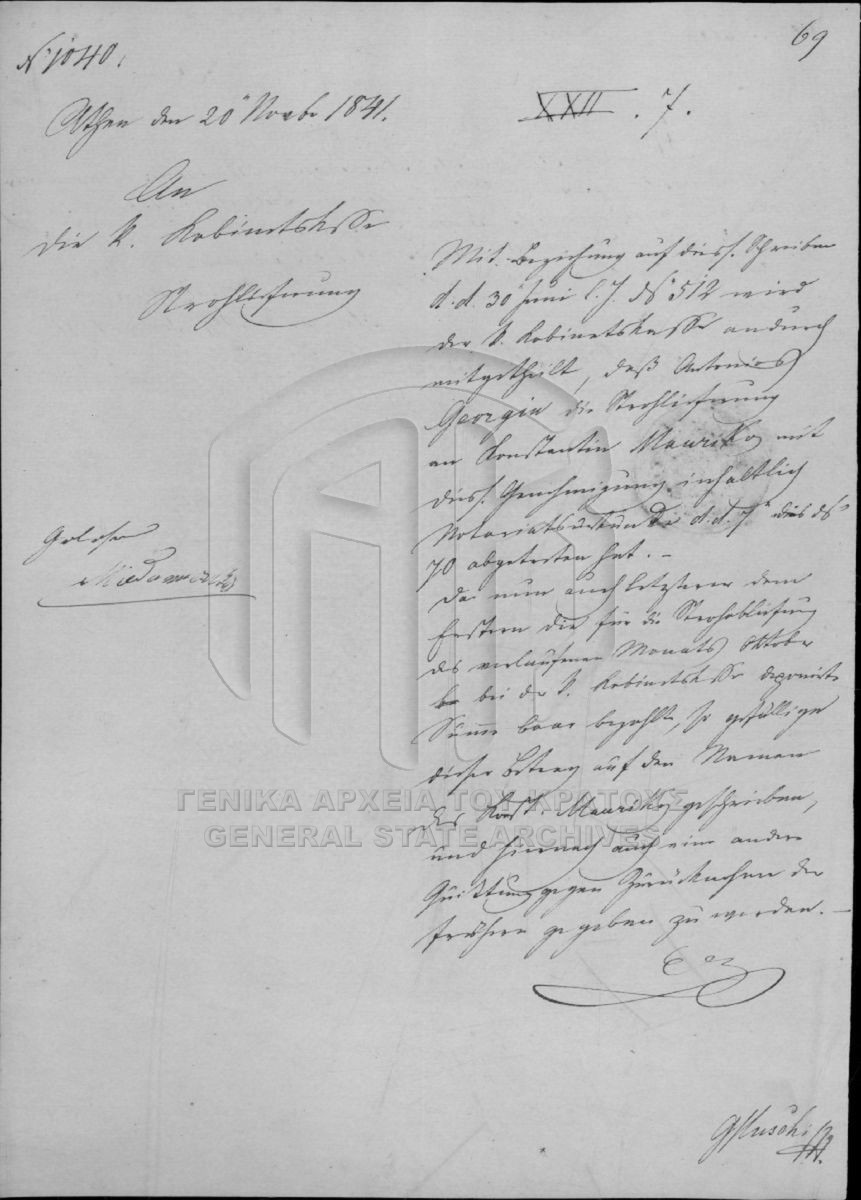 69
No 1040.
Athen den 20n Novbr 1841.
XXII . 7.
An
die k. Kabinetskasse
Strohlieferung
Mit Beziehung auf diess. Schreiben
d. d. 30n Juni l. J. No 512 wird
der k. Kabinetskasse andurch
mitgetheilt, daß Antonios
Georgiu die Strohlieferung
an Konstantin Mauriko mit
diess. Genehmigung inhaltlich
Notariatsurkunde d. d. 7n dies No
70 abgetreten hat. –
Da nun auch letzterer dem
Erstern die für die Strohablieferung
des verlaufenen Monats Oktober
bei der k. Kabinetskasse deponirte
Summe baar bezahlte, so gefällige
dieser Betrag auf den Namen
des Konst. Mauriko geschrieben,
und hiernach auch eine andere
Quittung gegen Zurücknahme der
frühern gegeben zu werden. –
Gelesen
ΓΕΝΙΚΑ ΑΡΧΕΙΑ ΤΟΥ ΚΡΑΤΟΥΣ
GENERAL STATE ARCHIVES